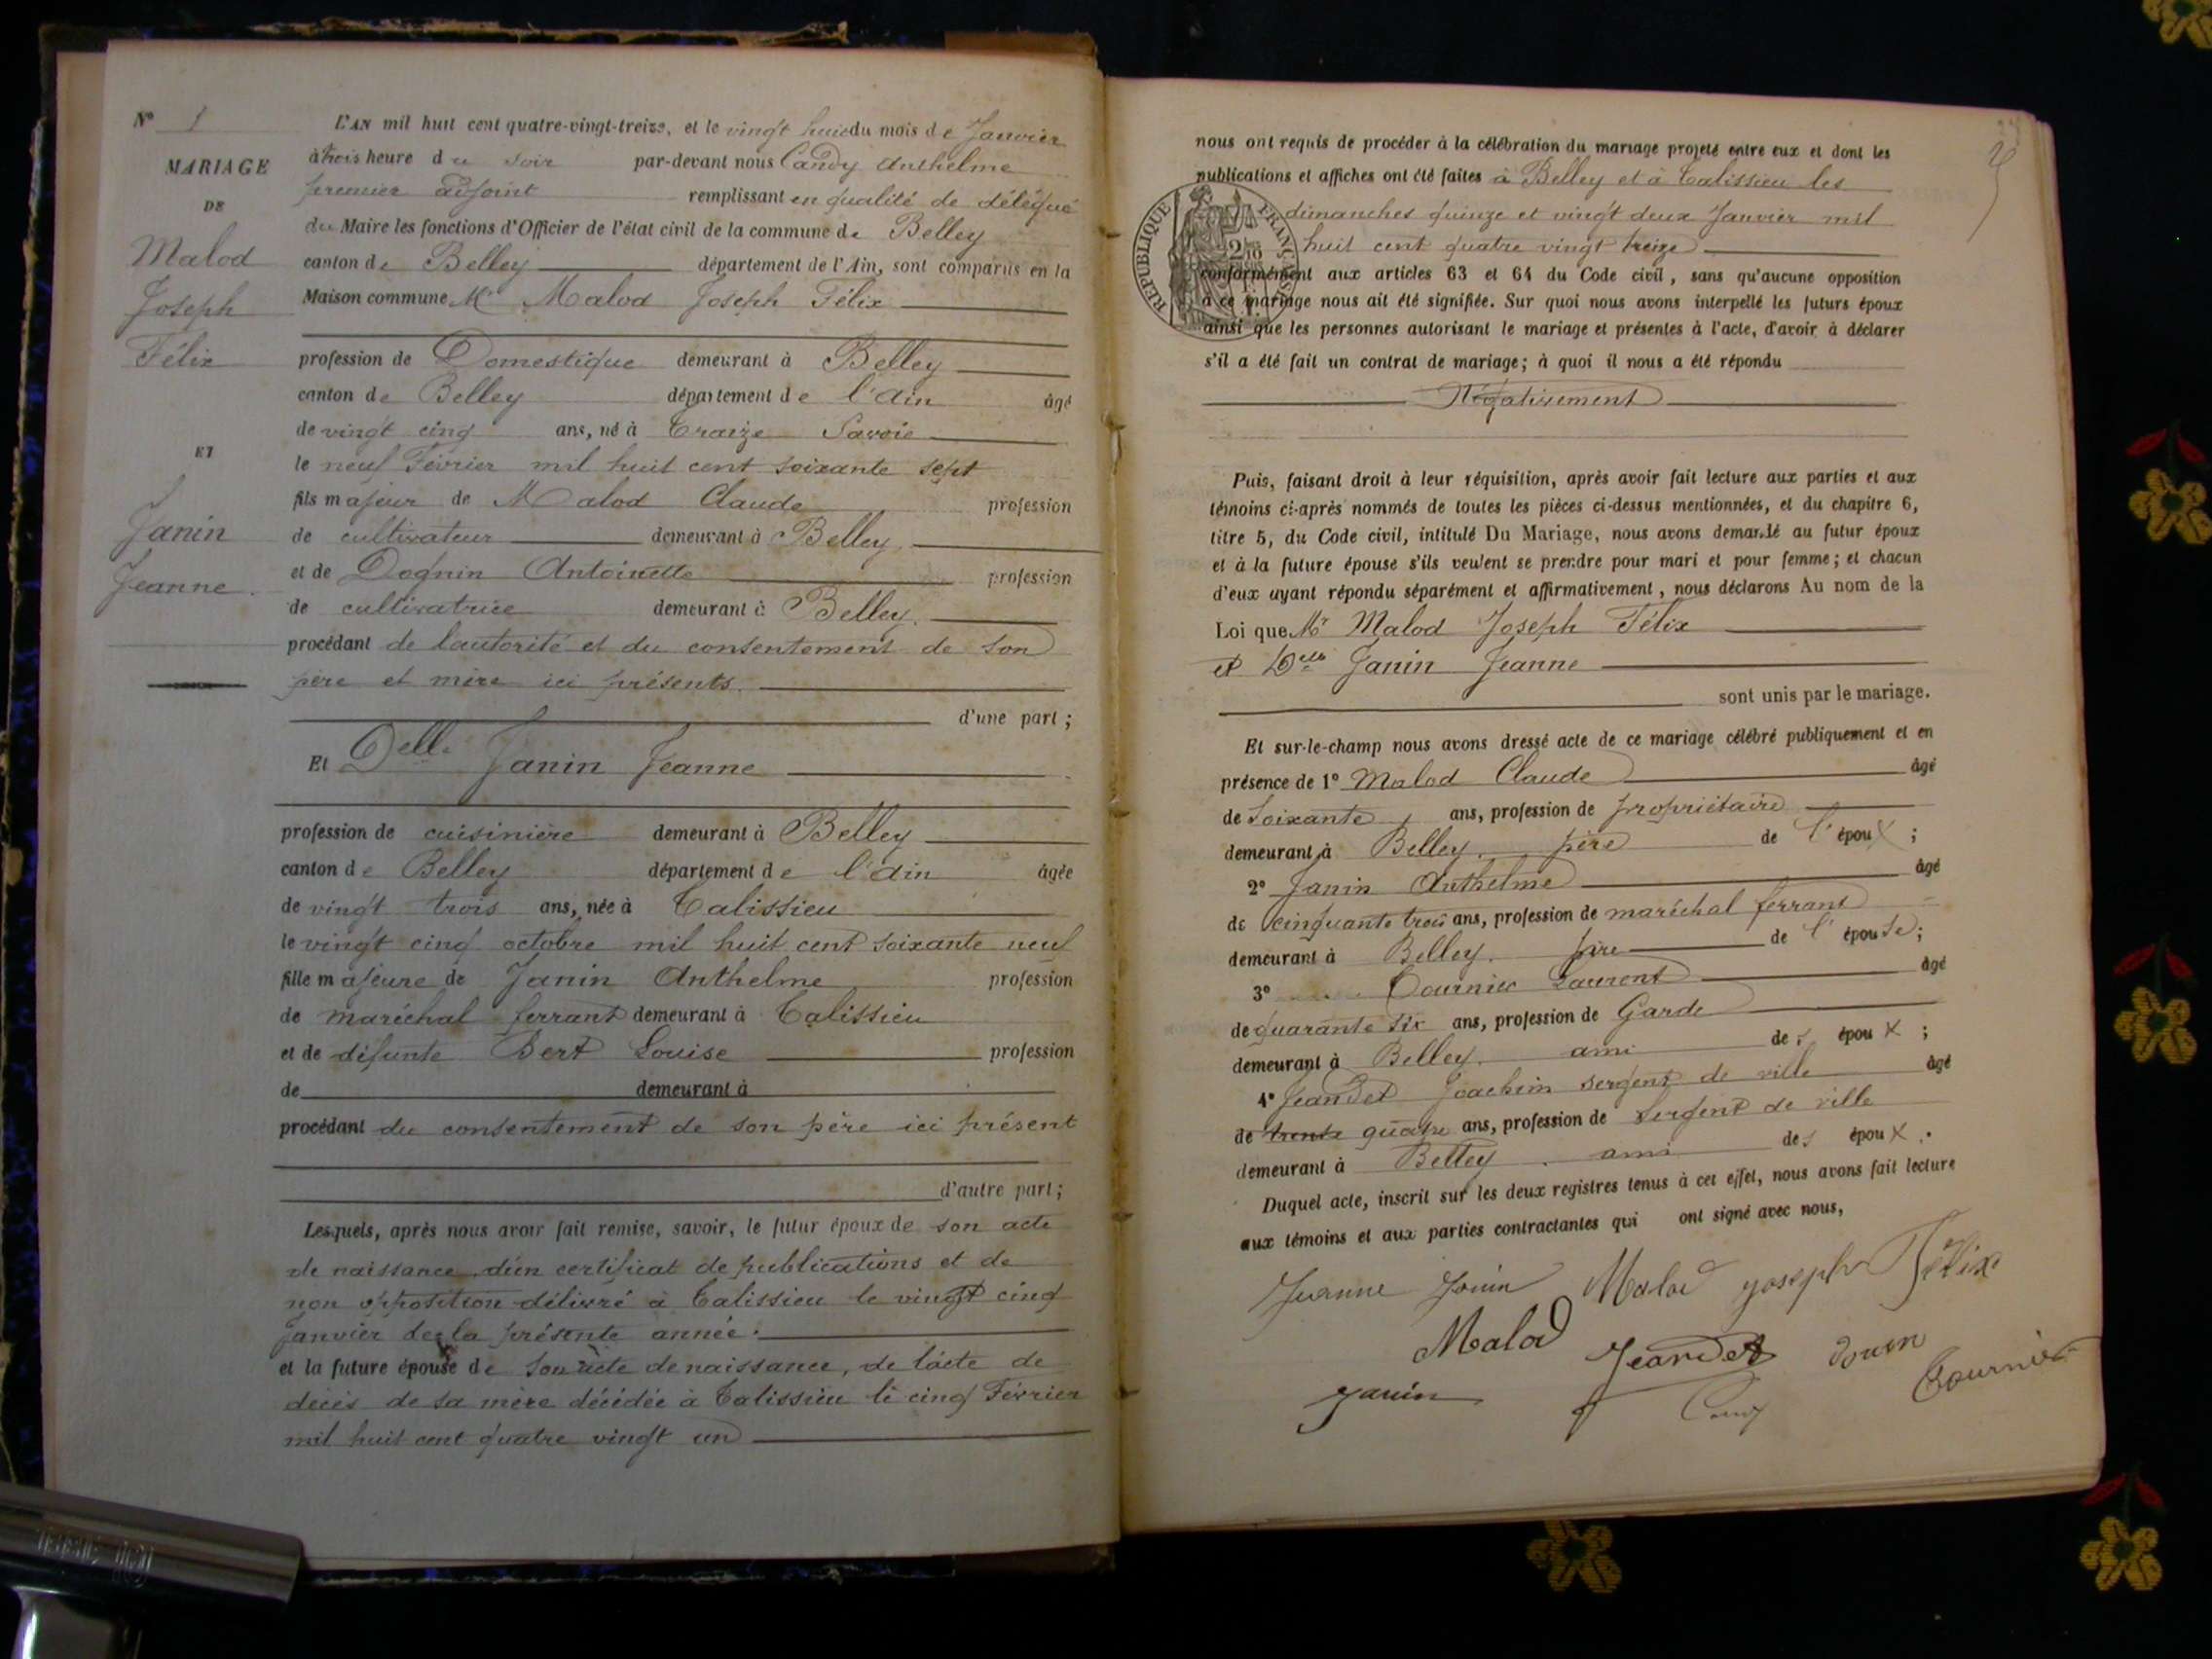 N° 1
MARIAGE
DE
Malod
Joseph
Félix
ET
Janin
Jeanne.
L'AN mil huit cent quatre-vingt-treize, et le vingt huit du mois de Janvier
à trois heure du soir par-devant nous Candy Anthelme
premier adjoint remplissant en qualité de délégué
du Maire les fonctions d'Officier de l'état civil de la commune de Belley
canton de Belley département de l'Ain, sont comparus en la
Maison commune Mr Malod Joseph Félix
profession de Domestique demeurant à Belley
canton de Belley département de l'Ain âgé
de vingt cinq ans, né à Traize Savoie
le neuf Février mil huit cent soixante sept
fils majeur de Malod Claude profession
de cultivateur demeurant à Belley,
et de Dognin Antoinette profession
de cultivatrice demeurant à Belley.
procédant de l'autorité et du consentement de son
père et mère ici présents.
d'une part;
Et Delle Janin Jeanne
profession de cuisinière demeurant à Belley
canton de Belley département de l'Ain âgée
de vingt trois ans, née à Talissieu
le vingt cinq octobre mil huit cent soixante neuf
fille majeure de Janin Anthelme profession
de maréchal ferrant demeurant à Talissieu
et de défunte Bert Louise profession
de demeurant à
procédant du consentement de son père ici présent
d'autre part;
Lesquels, après nous avoir fait remise, savoir, le futur époux de son acte
de naissance, d'un certificat de publications et de
non opposition délivré à Talissieu le vingt cinq
Janvier de la présente année.
et la future épouse de son acte de naissance, de l'acte de
décès de sa mère décédée à Talissieu le cinq Février
mil huit cent quatre vingt un
nous ont requis de procéder à la célébration du mariage projeté entre eux et dont les
publications et affiches ont été faites à Belley et à Talissieu les
dimanches quinze et vingt deux Janvier mil
huit cent quatre vingt treize
RÉPUBLIQUE FRANÇAISE
conformément aux articles 63 et 64 du Code civil, sans qu'aucune opposition
à ce mariage nous ait été signifiée. Sur quoi nous avons interpellé les futurs époux
ainsi que les personnes autorisant le mariage et présentes à l'acte, d'avoir à déclarer
s'il a été fait un contrat de mariage; à quoi il nous a été répondu
Négativement
Puis, faisant droit à leur réquisition, après avoir fait lecture aux parties et aux
témoins ci-après nommés de toutes les pièces ci-dessus mentionnées, et du chapitre 6,
titre 5, du Code civil, intitulé Du Mariage, nous avons demandé au futur époux
et à la future épouse s'ils veulent se prendre pour mari et pour femme; et chacun
d'eux ayant répondu séparément et affirmativement, nous déclarons Au nom de la
Loi que Mr Malod Joseph Félix
et Delle Janin Jeanne
sont unis par le mariage.
Et sur-le-champ nous avons dressé acte de ce mariage célébré publiquement et en
présence de 1° Malod Claude âgé
de Soixante ans, profession de propriétaire
demeurant à Belley. père de l'époux;
2° Janin Anthelme âgé
de cinquante trois ans, profession de maréchal ferrant
demeurant à Belley. père de l'épouse;
3° Tournier Laurent âgé
de quarante six ans, profession de Garde
demeurant à Belley. ami des époux;
4° Jeandet Joachim sergent de ville âgé
de trente quatre ans, profession de Sergent de ville
demeurant à Belley. ami des époux.
Duquel acte, inscrit sur les deux registres tenus à cet effet, nous avons fait lecture
aux témoins et aux parties contractantes qui ont signé avec nous,
Jeanne Janin Malod joseph Félix
Malod Jeandet
janin Candy Tournier